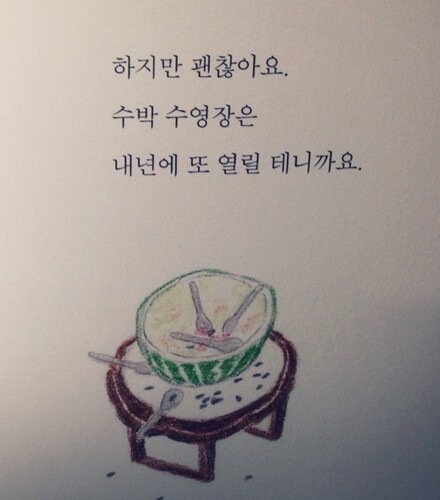 하지만 괜찮아요.
수박 수영장은
내년에 또 열릴 테니까요.